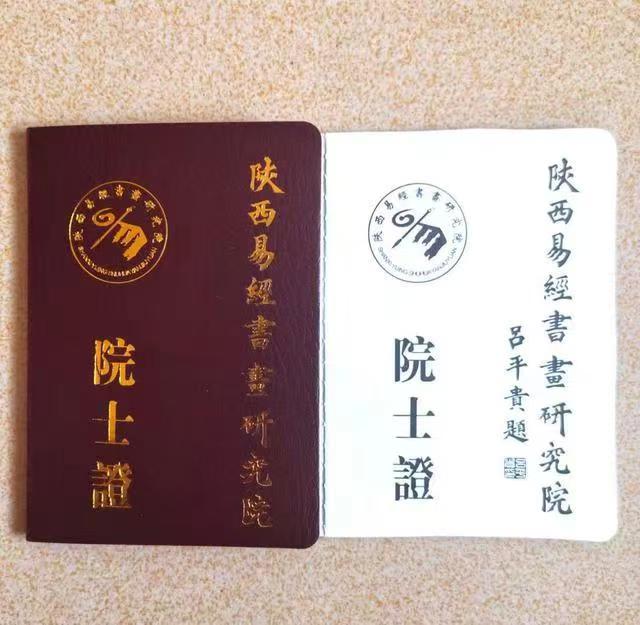 陕西易經書畫研究院
陕西易經書畫研究院
院士證
陕西易經書畫研究院
呂平貴題
陕西易經書畫研究院
院士證